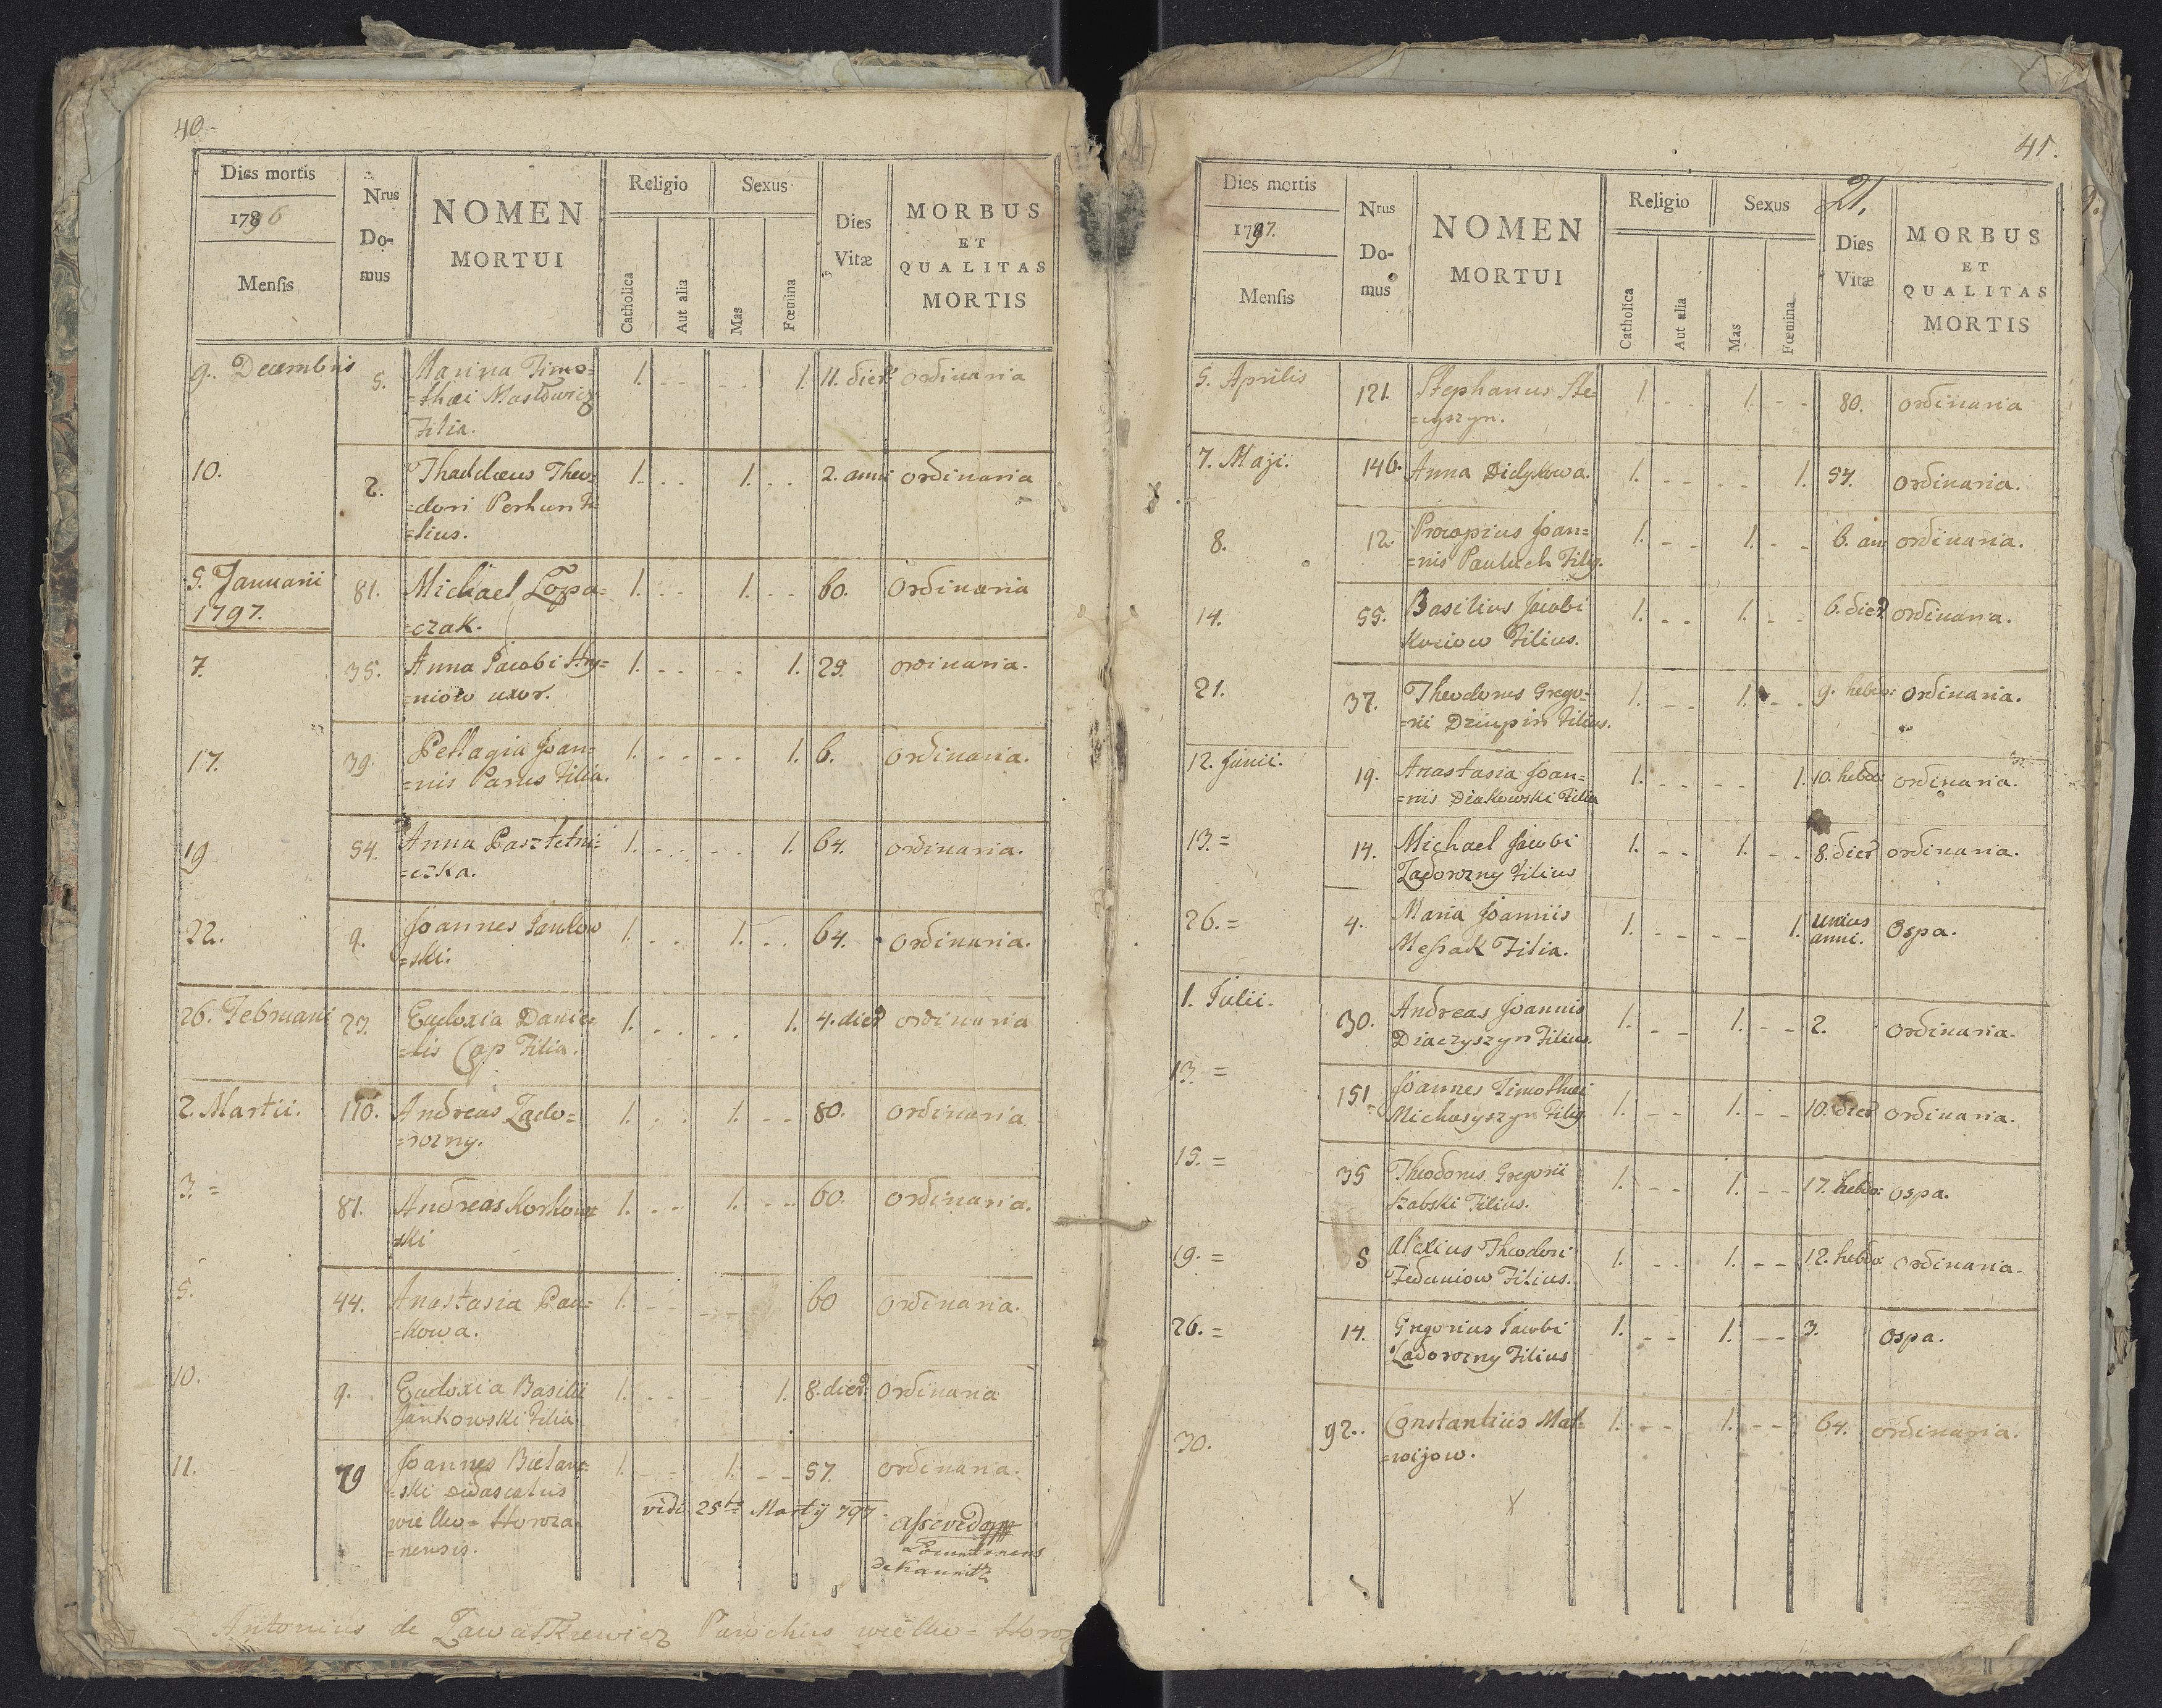 40.
Dies mortis
1796
Mensis
Nrus
Do-
mus
NOMEN
MORTUI
Religio
Catholica
Aut alia
Sexus
Mas
Fœmina
Dies
Vitæ
MORBUS
ET
QUALITAS
MORTIS
9. Decembris 5. Marina Timo= 1. - - - - 1. 11. dier. ordinaria
=thæi Masłowicz
Filia.
10. 2. Thaddæus Theo= 1. - - 1. - - 2. anni ordinaria
=dori Perhun Fi=
=lius.
5. Januarii 81. Michael Łopa= 1. - - 1. - - 60. ordinaria
1797. =czak.
7. 35. Anna Jacobi Hry= 1. - - - - 1. 25. ordinaria.
=niow uxor.
17. 39. Pellagia Joan= 1. - - - - 1. 6. ordinaria.
=nis Panes Filia.
19 54. Anna Pasztetni= 1. - - - - 1. 64. ordinaria.
=czka.
22. 9. Joannes Jankow 1. - - 1. - - 64. ordinaria.
=ski.
26. Februarii 23. Eudoxia Danie= 1. - - - - 1. 4. dier ordinaria
=lis Cap Filia.
2. Martii. 110. Andreas Zado= 1. - - 1. - - 80. ordinaria
=rozny.
3. = 81. Andreas Korkow 1. - - 1. - - 60. ordinaria.
ski
5. 44. Anastasia Pau= 1. - - - - 60 ordinaria.
=kowa.
10. 9. Eudoxia Basilii 1. - - - 1. 8. dier. ordinaria
Jankowski Filia.
11. 79 Joannes Bielaw= 1. - - 1. - - 57. ordinaria.
=ski didascalus
wielko= Horoza=
=nensis.
vidi 25ta Martÿ 797.
de Kaunitz
Antonius de Zawatkiewicz Parochus wielko= Horoz
41.
21.
Dies mortis
1797.
Mensis
Nrus
Do-
mus
NOMEN
MORTUI
Religio
Catholica
Aut alia
Sexus
Mas
Fœmina
Dies
Vitæ
MORBUS
ET
QUALITAS
MORTIS
5. Aprilis 121. Stephanus Ste= 1. - - 1. - - 80. ordinaria
=cyszyn.
7. Maji. 146. Anna Didykowa. 1. - - - - 1. 54. ordinaria.
8. 12. Procopius Joan= 1. - - 1. - - 6. an ordinaria.
=nis Pauluch Filiy.
14. 55. Basilius Jacobi 1. - - 1. - - 6. dier ordinaria.
Kuciow Filius.
21. 37. Theodorus Grego= 1. - - 1. - - 9. hebdo: ordinaria.
=rii Dziupin Filius.
12. Junii. 19. Anastasia Joan= 1. - - - - 1. 10. hebdo: ordinaria.
=nis Diakowski Filia
13. = 14. Michael Jacobi 1. - - 1. - - 8. dier ordinaria.
Zadorozny Filius
26. = 4. Maria Joannis 1. - - - - 1. unius Ospa.
Messak Filia. anni.
1. Julii. 30. Andreas Joannis 1. - - 1. - - 2. ordinaria.
Diaczyszyn Filius.
13. = 151. Joannes Timothæi 1. - - 1. - - 10. dier ordinaria.
Michasyszyn Filiy
15. = 35 Theodorus Gregorii 1. - - 1. - - 17. hebdo: ospa.
Szabski Filius.
19. = 5 Alexius Theodori 1. - - 1. - - 12. hebdo: ordinaria.
Feduniow Filius.
26. = 14. Gregorius Jacobi 1. - - 1. - - 3. ospa.
Zadorozny Filius
30. 92. Constantius Mat= 1. - - 1. - - 64. ordinaria.
=wijow.